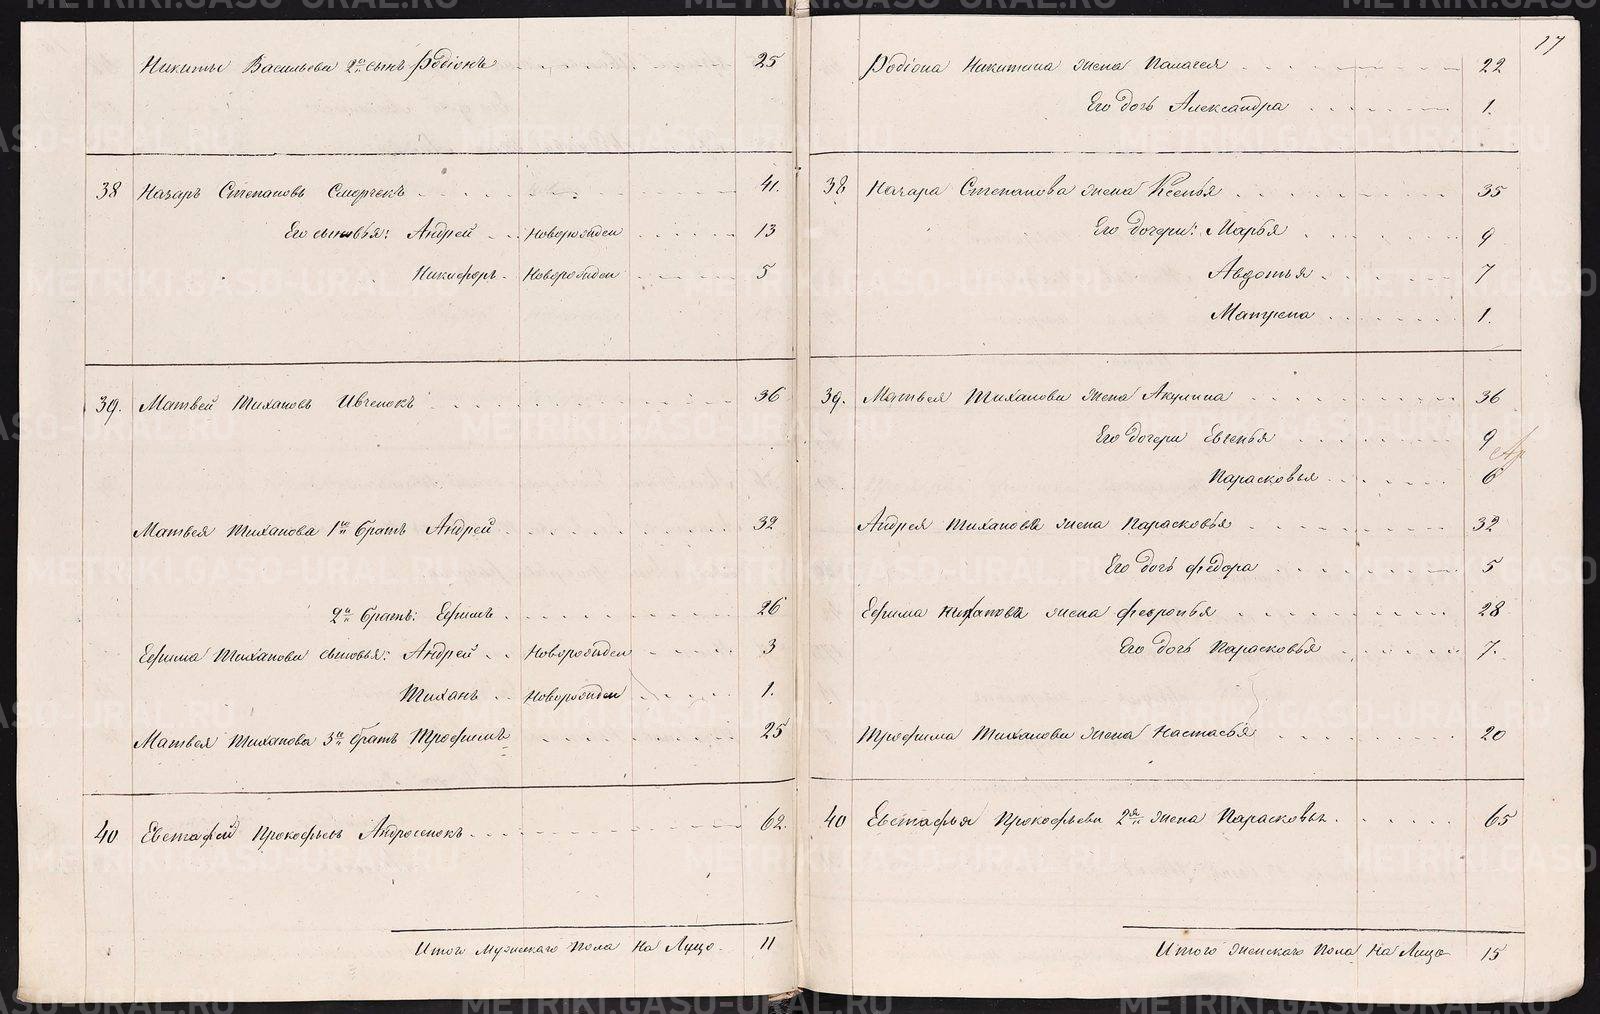 Никиты Васильева 2й сынъ Родіонъ 25
38 Назаръ Степановъ Сморчекъ 41.
Его сыновья: Андрей Новорожден 13
Никифоръ Новорожден 5
39. Матвей Тихановъ Ивченокъ 36
Матвея Тиханова 1й братъ Андрей 32
2й братъ: Ефимъ 26
Ефима Тиханова сыновья: Андрей Новорожден 3
Тиханъ Новорожден 1.
Матвея Тиханова 3й братъ Трофимъ 25
40 Евстафей Прокофьевъ Андросенокъ 62.
Итого Мужескаго пола на Лицо 11
17
Родіона Никитина жена Палагея 22
Его дочь Александра 1.
38 Назара Степанова жена Ксенья 35
Его дочери: Марья 9
Авдотья 7
Матрена 1.
39. Матвея Тиханова жена Акулина 36
Его дочери Евгенья 9
Парасковья 6
Андрея Тиханова жена Парасковья 32
Его дочь Федора 5
Ефима Тиханова жена Февронья 28
Его дочь Парасковья 7.
Трофима Тиханова жена Настасья 20
40 Евстафья Прокофьева 2я жена Парасковья 65
Итого женскаго пола на Лицо 15
METRIKI.GASO-URAL.RU